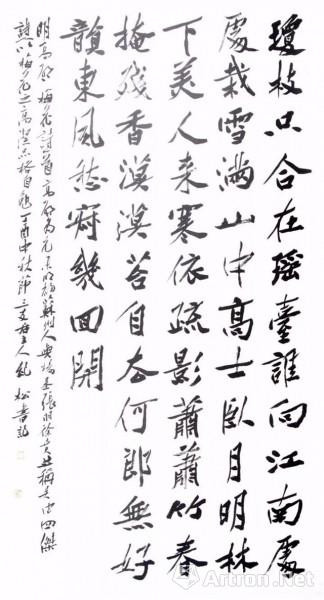 瓊枝只合在瑶臺誰向江南處
處栽雪滿山中高士臥月明林
下美人来寒依疏影蕭蕭竹春
掩残香漠漠苔自去何郎無好
韻東風愁寂幾回開
明高啟梅花詩一首高啟为元末明初蘇州人與楊基張羽徐賁並稱吴中四傑
詩以梅花之高潔品格自勉丁酉中秋節三主人松書記
Artron.Net